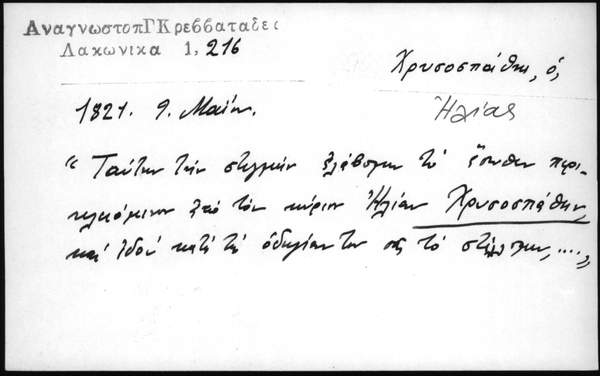 ΑναγνωστοπΓΚρεββαταδες
Λακωνικα 1, 216
Χρυσοσπάθης, ὁ,
Ἠλίας
1821. 9. Μαΐου.
"Ταύτην τήν στιγμήν ἐλάβομεν τό ἔσωθεν περι-
κλειόμενον ἀπό τόν κύριον Ἠλίαν Χρυσοσπάθην,
καί ἰδού κατά τό ὁδηγίαν του σᾶς τό στέλλομεν, ....„